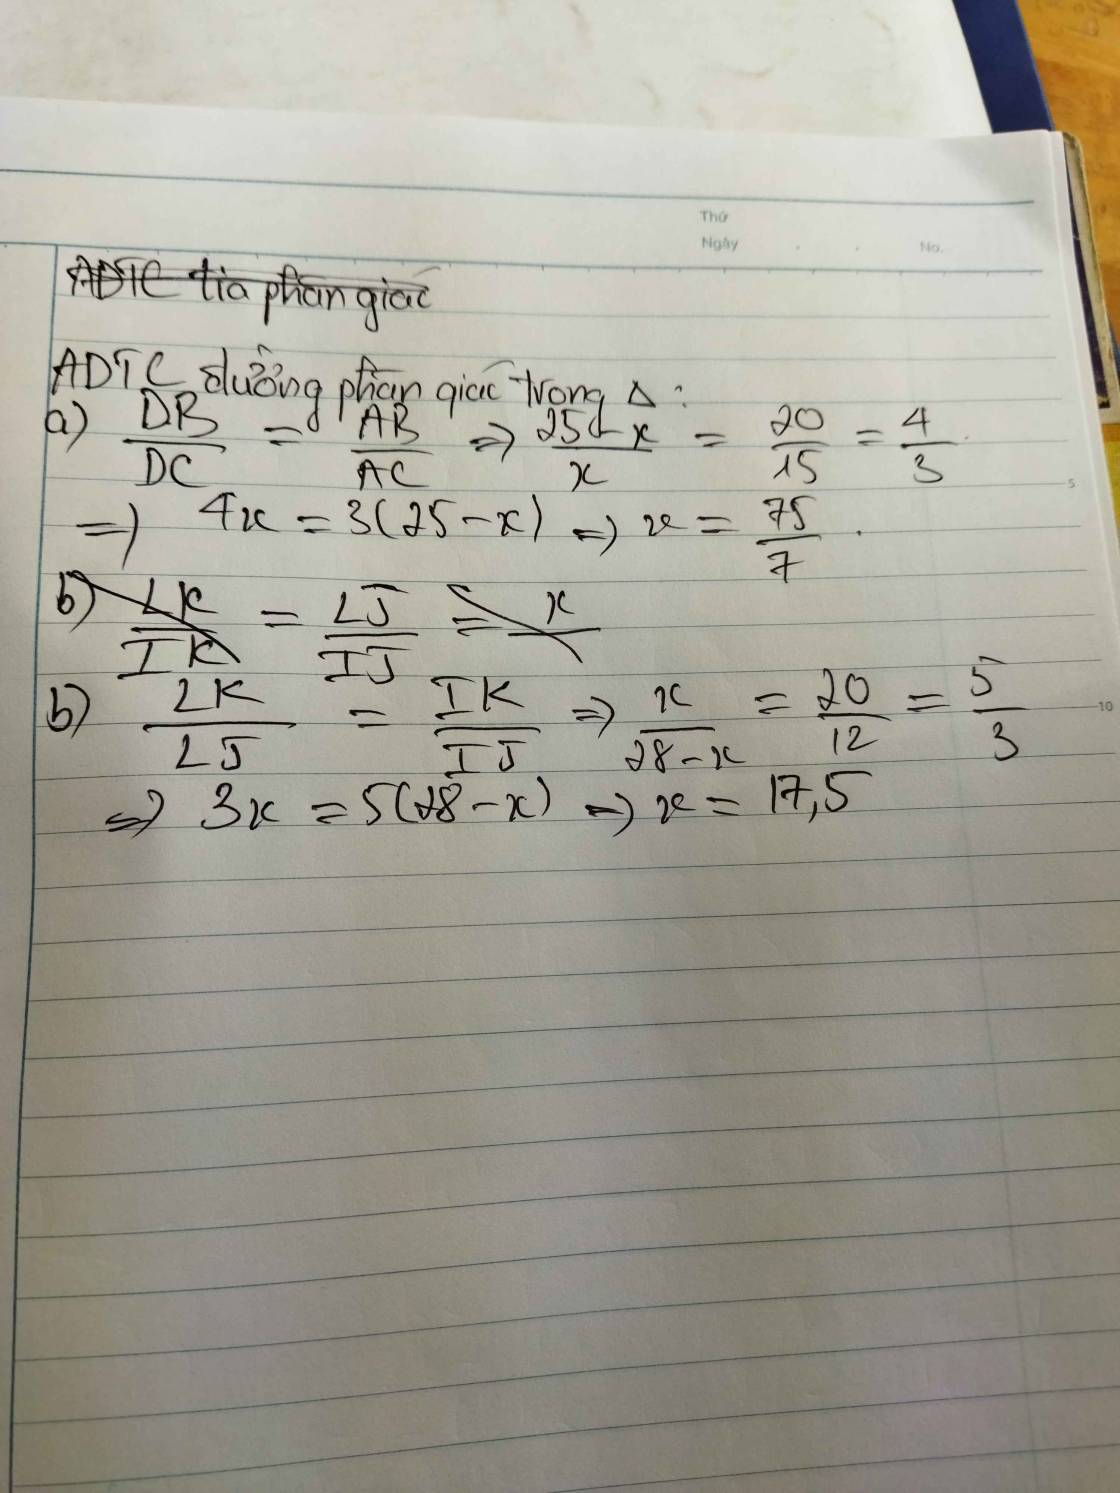 Thứ
Ngày . . No.
ADTC tia phân giác
ADTC đường phân giác trong Δ :
a) DB/DC = AB/AC => 25-x/x = 20/15 = 4/3
=> 4x = 3(25-x) => x = 75/7 .
5
b) LK/IK = LJ/IJ = x
b) LK/LJ = IK/IJ => x/28-x = 20/12 = 5/3
10
=> 3x = 5(28-x) => x = 17,5